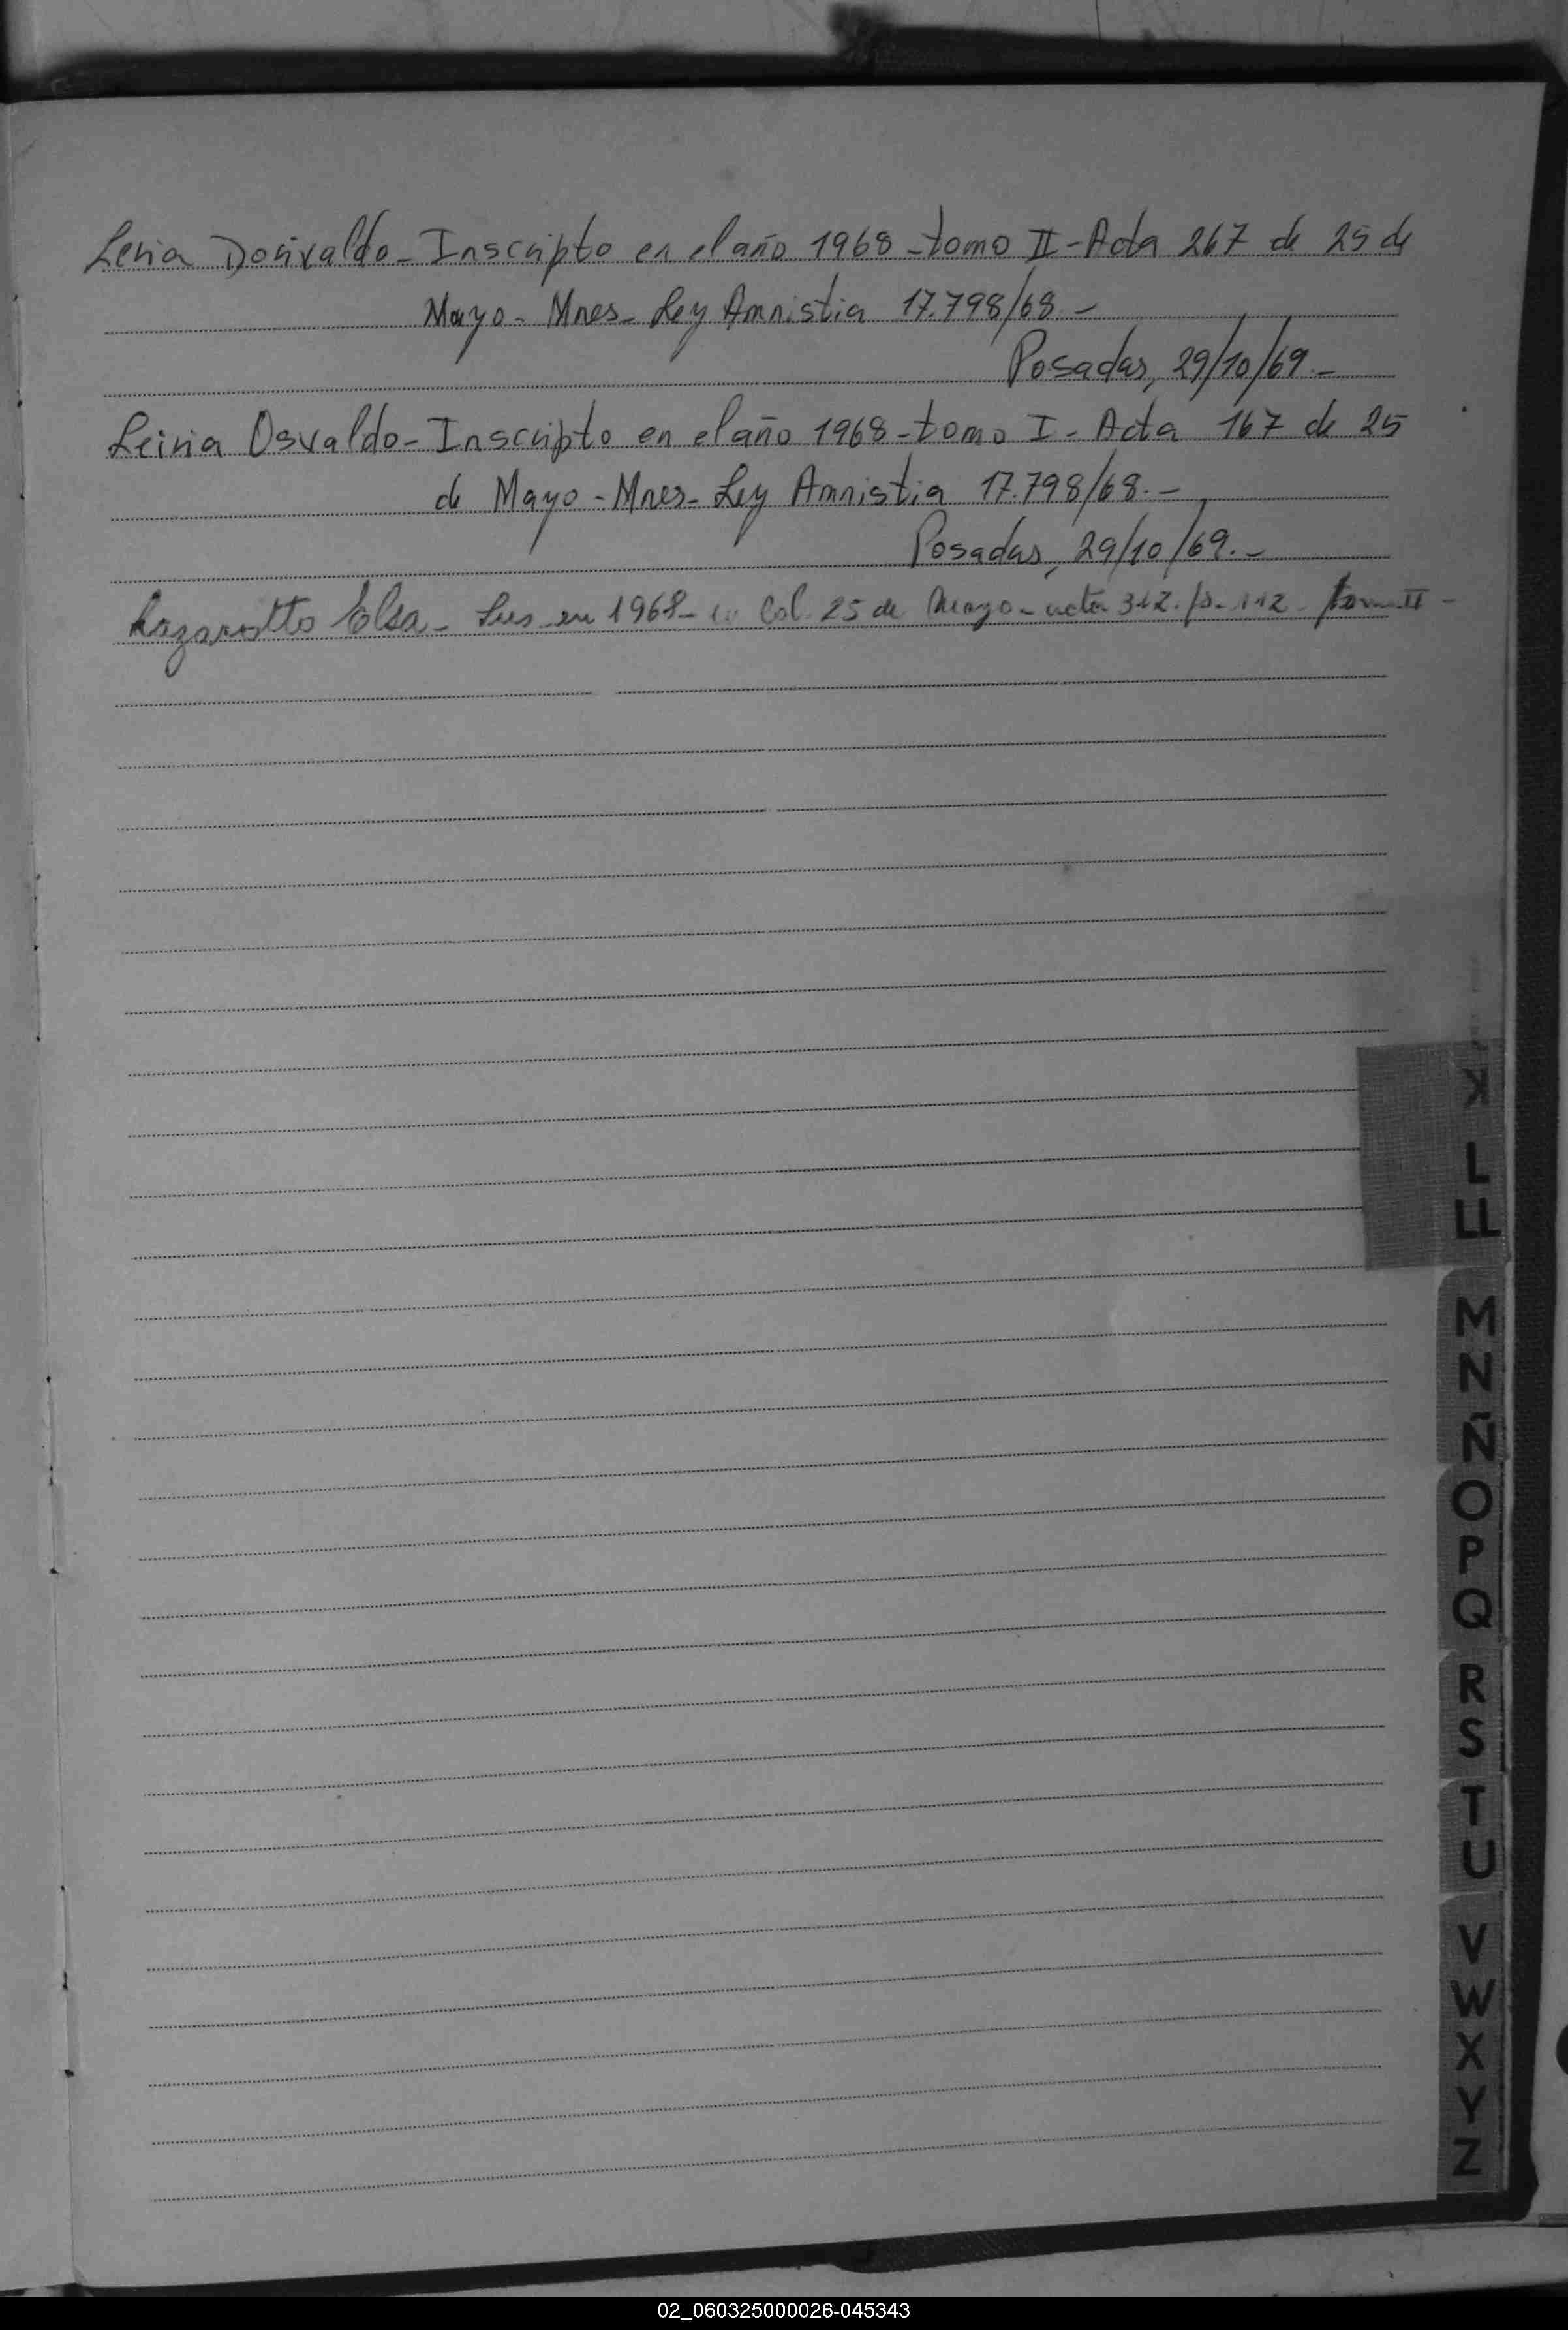 Leria Dorivaldo - Inscripto en el año 1968 - tomo II - Acta 267 de 25 de
Mayo - Mnes - Ley Amnistia 17.798/68.-
Posadas, 29/10/69.-
Leiria Osvaldo - Inscripto en el año 1968 - tomo I - Acta 167 de 25
de Mayo - Mnes - Ley Amnistia 17.798/68.-
Posadas, 29/10/69.-
Lazarotto Elsa - Ins - en 1968 - Col. 25 de Mayo - acta 312. - 112 - tomo II -
K
L
LL
M
N
Ñ
O
P
Q
R
S
T
U
V
W
X
Y
Z
02_060325000026-045343